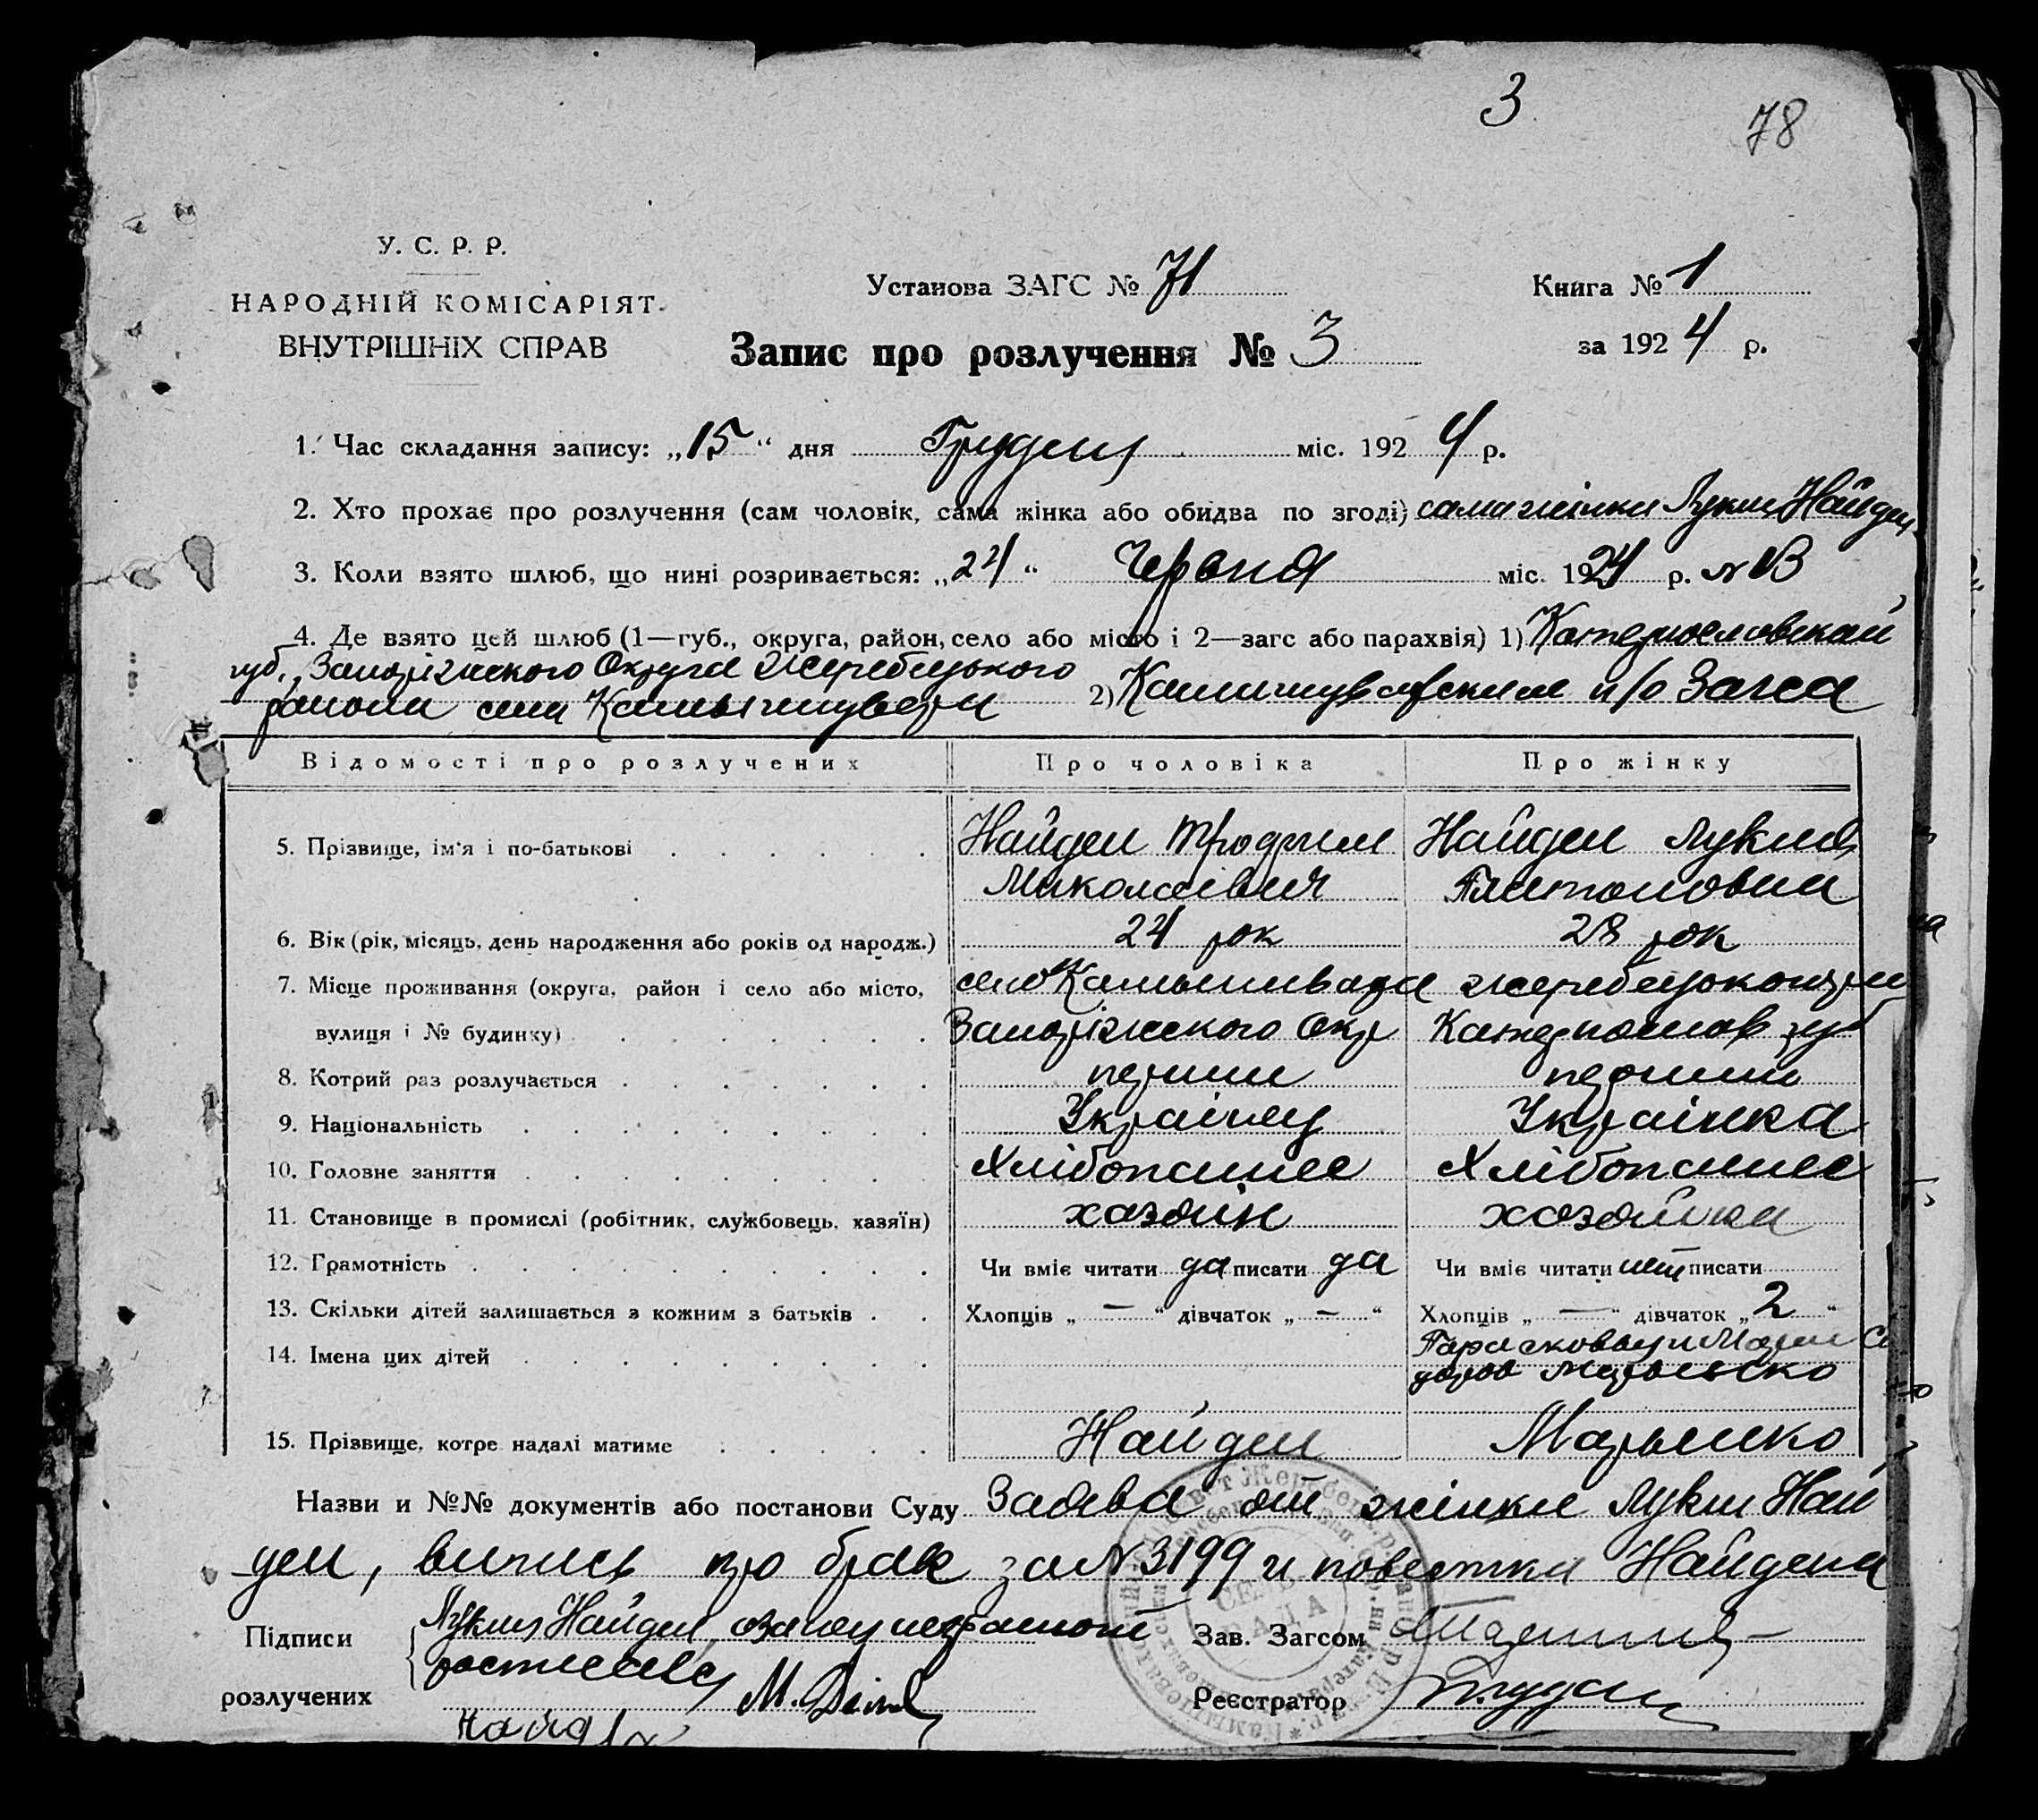 3
78
У. С. Р. Р.
НАРОДНІЙ КОМІСАРІЯТ
ВНУТРІШНІХ СПРАВ
Установа ЗАГС № 71
Книга № 1
Запис про розлучення № 3
за 1924 р.
1. Час складання запису: „15“ дня Грудня міс. 1924 р.
2. Хто прохає про розлучення (сам чоловік, сама жінка або обидва по згоді) сама жінка Лукия Найден
3. Коли взято шлюб, що нині розривається: „24“ Червня міс. 1924 р.
4. Де взято цей шлюб (1—губ., округа, район, село або місто і 2—загс або парахвія) 1) Катернославской
губ., Запоріжского Округа Жеребецького
района села Камышувахи 2) Камишувахским п/о Загса
Відомості про розлучених Про чоловіка Про жінку
5. Прізвище, ім'я і по-батькові Найден Трофим Найден Лукия
Миколаівич Платоновна
6. Вік (рік, місяць, день народження або років од народж.) 24 рок 28 рок
7. Місце проживання (округа, район і село або місто, село Камышиваха Жеребецького
вулиця і № будинку) Запоріжского Окр Катернослав губ
8. Котрий раз розлучається первии первии
9. Національність Українец Українка
10. Головне заняття Хлібопашес Хлібопашес
11. Становище в промислі (робітник, службовець, хазяїн) хозяін хозяйка
12. Грамотність Чи вміє читати да писати да Чи вміє читати нет писати
13. Скільки дітей залишається з кожним з батьків Хлопців „ — “ дівчаток „ — “ Хлопців „ — “ дівчаток „ 2 “
14. Імена цих дітей
15. Прізвище, котре надалі матиме Найден Марченко
Назви и №№ документів або постанови Суду Заява от жінки Лукии Най
ден, випись про брак за № 3199 и повестка Найдена
Підписи Лукия Найден, за неграмот Зав. Загсом
розлучених Реєстратор